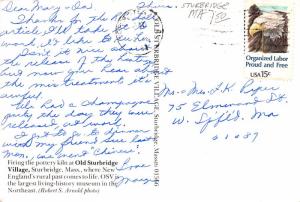 Dear Mary-Da Thurs.
Thanks for the
article I'll take to
work, it's
Isn't it nice
the release of the hostages
but now you hear about
the mistreatment it's
awful.
We had a champagne
party the day they were
released at work.
I got to go to dinner
with my friend Sue last
Mon, we went "Chinese".
Love
Firing the pottery kiln at Old Sturbridge
Village, Sturbridge, Mass., where New
England's rural past comes to life. OSV is
the largest living-history museum in the
Northeast. (Robert S. Arnold photo)
OLD STURBRIDGE VILLAGE, Sturbridge, Mass. 01566
STURBRIDGE
MA
Organized Labor
Proud and Free
USA 15c
Mrs. L.K.
75 Elmwood St.
W. Spfld. Ma
01089